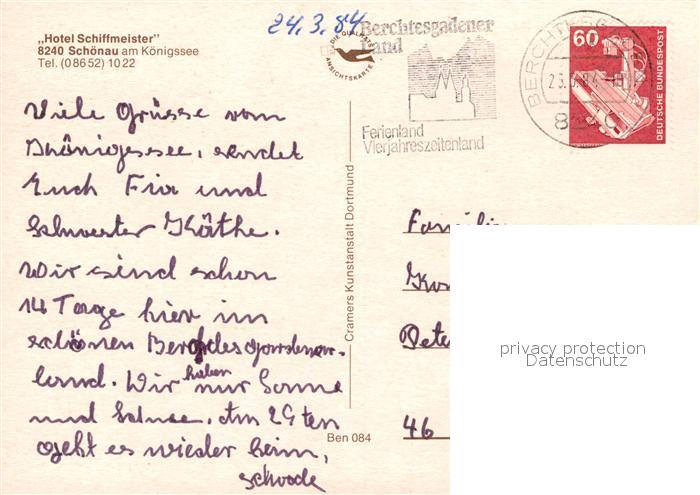 24.3.84
„Hotel Schiffmeister"
8240 Schönau am Königssee
Tel. (0 86 52) 10 22
DIE QUALITÄTS
ANSICHTSKARTE
Berchtesgadener
Land
Ferienland
Vierjahreszeitenland
BERCHTESG
60
DEUTSCHE BUNDESPOST
Viele Grüsse vom
Königssee, sendet
Euch Fia und
Schwester Käthe.
Wir sind schon
14 Tage hier im
schönen Berchdesgardener-
land. Wir haben nur Sonne
und Schnee. Am 29ten
geht es wieder heim,
schade
Cramers Kunstanstalt Dortmund
Ben 084
Familie
Pete
46
privacy protection
Datenschutz